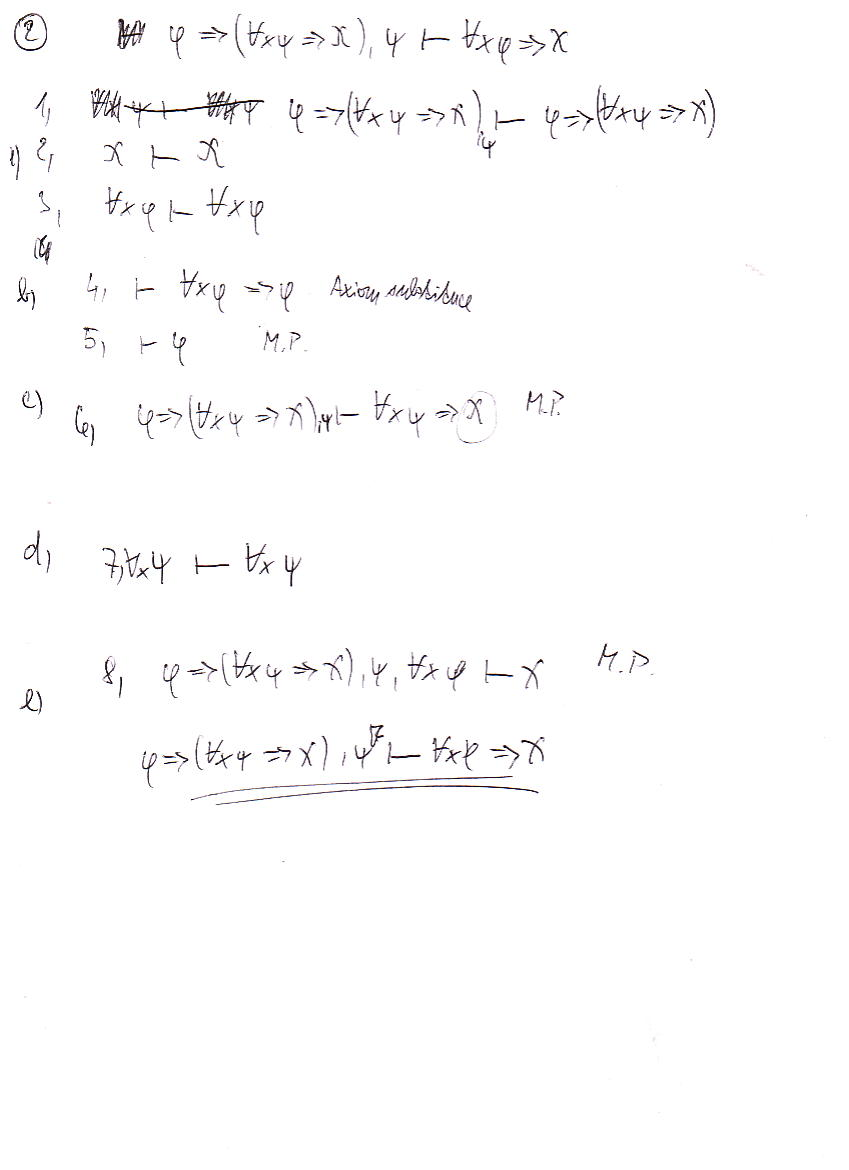 ② φ ⇒ (∀xψ ⇒ X), ψ ⊢ ∀xφ ⇒ X
1, φ ⇒ (∀xψ ⇒ X), ψ ⊢ φ ⇒ (∀xψ ⇒ X)
2, X ⊢ X
3, ∀xφ ⊢ ∀xφ
b) 4, ⊢ ∀xφ ⇒ φ Axiom substituce
5, ⊢ φ M.P.
c) 6, φ ⇒ (∀xψ ⇒ X), ψ ⊢ ∀xψ ⇒ X M.P.
d, 7, ∀xψ ⊢ ∀xψ
8, φ ⇒ (∀xψ ⇒ X), ψ, ∀xφ ⊢ X M.P.
e)
φ ⇒ (∀xψ ⇒ X), ψ ⊢ ∀xφ ⇒ X